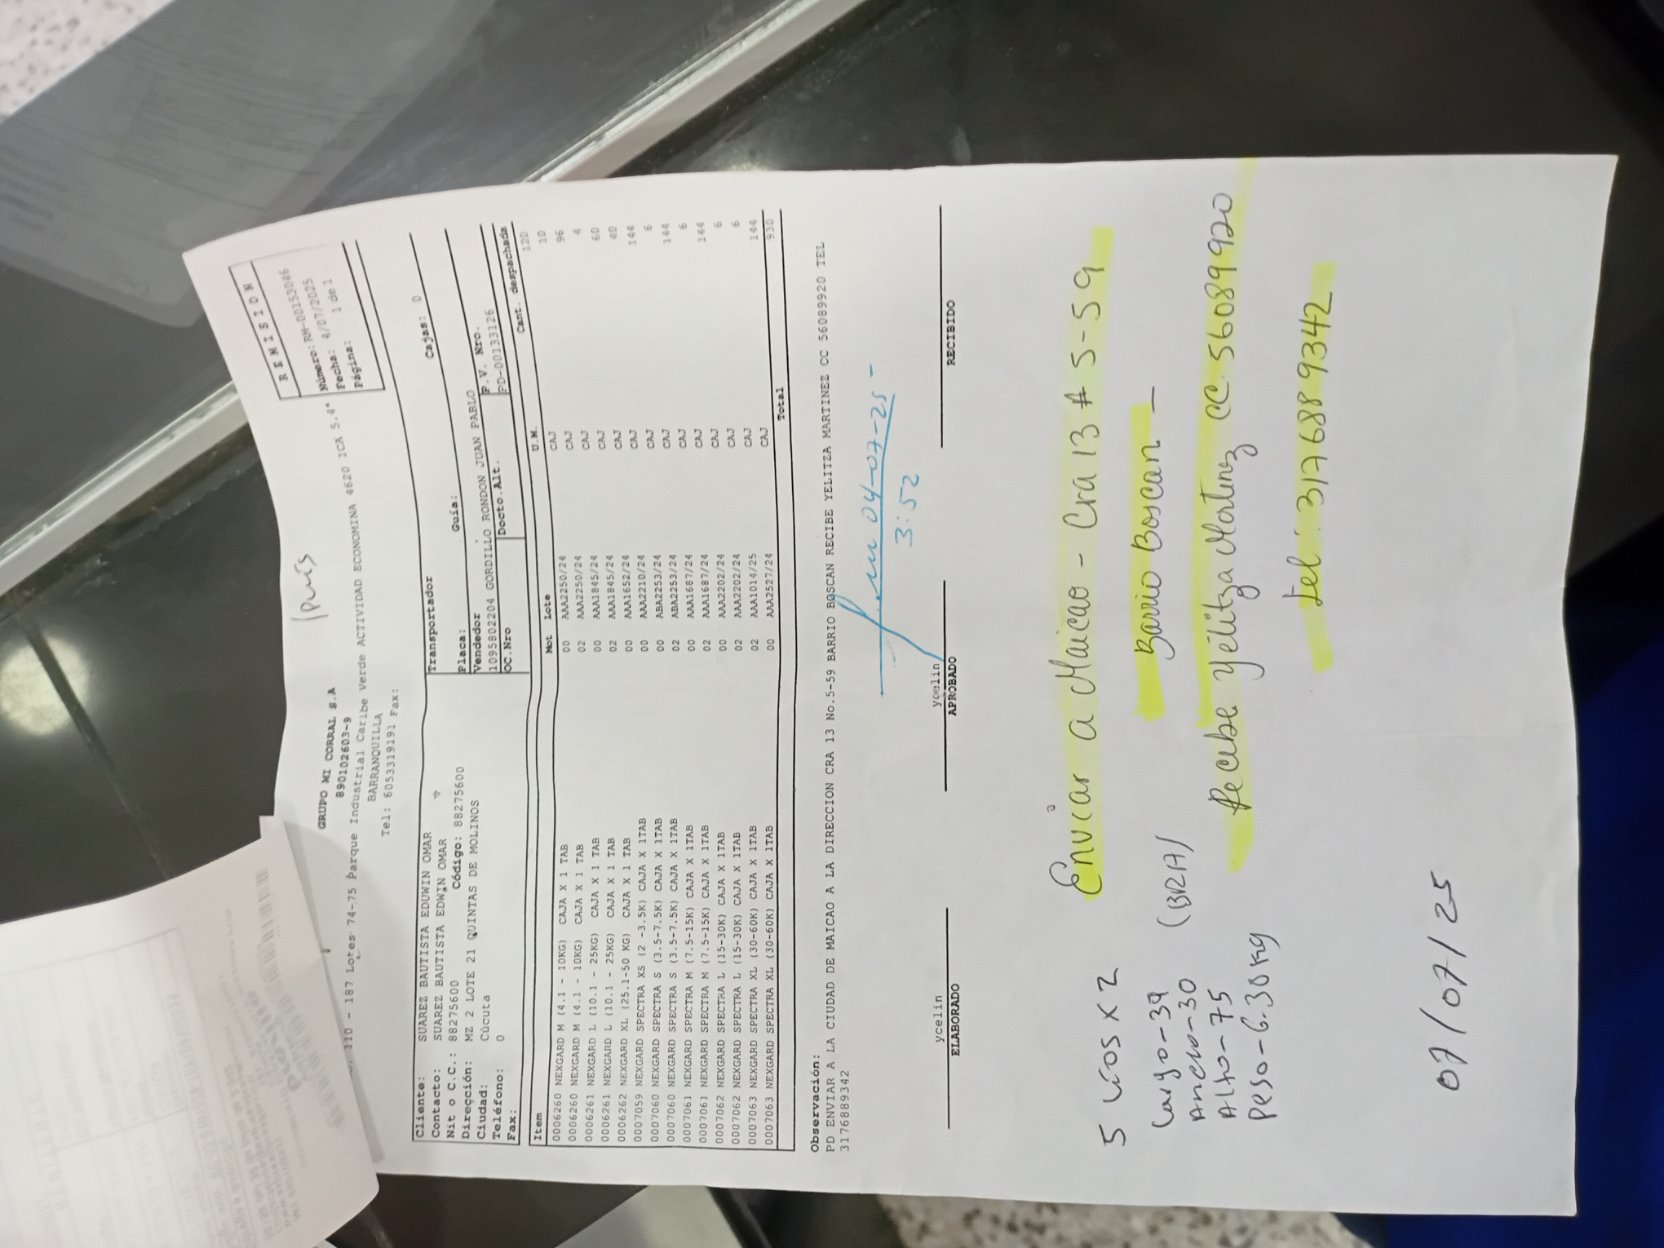 GRUPO MI CORRAL S.A
890102603-9
110 - 187 Lotes 74-75 Parque Industrial Caribe Verde ACTIVIDAD ECONOMINA 4620 ICA 5.4*
BARRANQUILLA
Tel: 6053319191 Fax:
REMISION
Número: RM-00153046
Fecha: 4/07/2025
Página: 1 de 1
Cliente: SUAREZ BAUTISTA EDUWIN OMAR
Contacto: SUAREZ BAUTISTA EDWIN OMAR
Nit o C.C.: 88275600 Código: 88275600
Dirección: MZ 2 LOTE 21 QUINTAS DE MOLINOS
Ciudad: Cúcuta
Teléfono: 0
Fax:
Transportador Cajas: 0
Placa: Guía:
Vendedor
1095802204 GORDILLO RONDON JUAN PABLO
P.V. Nro.
OC.Nro Docto.Alt. PD-00133126
Item Mot Lote U.M. Cant. despachada
0006260 NEXGARD M (4.1 - 10KG) CAJA X 1 TAB 00 AAA2250/24 CAJ 120
0006260 NEXGARD M (4.1 - 10KG) CAJA X 1 TAB 02 AAA2250/24 CAJ 10
0006261 NEXGARD L (10.1 - 25KG) CAJA X 1 TAB 00 AAA1845/24 CAJ 96
0006261 NEXGARD L (10.1 - 25KG) CAJA X 1 TAB 02 AAA1845/24 CAJ 4
0006262 NEXGARD XL (25.1-50 KG) CAJA X 1 TAB 00 AAA1652/24 CAJ 60
0007059 NEXGARD SPECTRA XS (2 -3.5K) CAJA X 1TAB 00 AAA2210/24 CAJ 40
0007060 NEXGARD SPECTRA S (3.5-7.5K) CAJA X 1TAB 00 ABA2253/24 CAJ 144
0007060 NEXGARD SPECTRA S (3.5-7.5K) CAJA X 1TAB 02 ABA2253/24 CAJ 6
0007061 NEXGARD SPECTRA M (7.5-15K) CAJA X 1TAB 00 AAA1687/24 CAJ 144
0007061 NEXGARD SPECTRA M (7.5-15K) CAJA X 1TAB 02 AAA1687/24 CAJ 6
0007062 NEXGARD SPECTRA L (15-30K) CAJA X 1TAB 00 AAA2202/24 CAJ 144
0007062 NEXGARD SPECTRA L (15-30K) CAJA X 1TAB 02 AAA2202/24 CAJ 6
0007063 NEXGARD SPECTRA XL (30-60K) CAJA X 1TAB 02 AAA1014/25 CAJ 6
0007063 NEXGARD SPECTRA XL (30-60K) CAJA X 1TAB 00 AAA2527/24 CAJ 144
Total 930
Observación:
PD ENVIAR A LA CIUDAD DE MAICAO A LA DIRECCION CRA 13 No.5-59 BARRIO BOSCAN RECIBE YELITZA MARTINEZ CC 56089920 TEL
3176889342
04-07-25-
3:52
ycelin ycelin
ELABORADO APROBADO RECIBIDO
Enviar a Maicao - Cra 13 # 5-59
Barrio Boscan -
Recibe Yelitza Martinez CC. 56089920
Tel: 3176889342
5 Lios x 2
Largo-39 (BRA)
Ancho-30
Alto-75
Peso-6.30 Kg
07/07/25